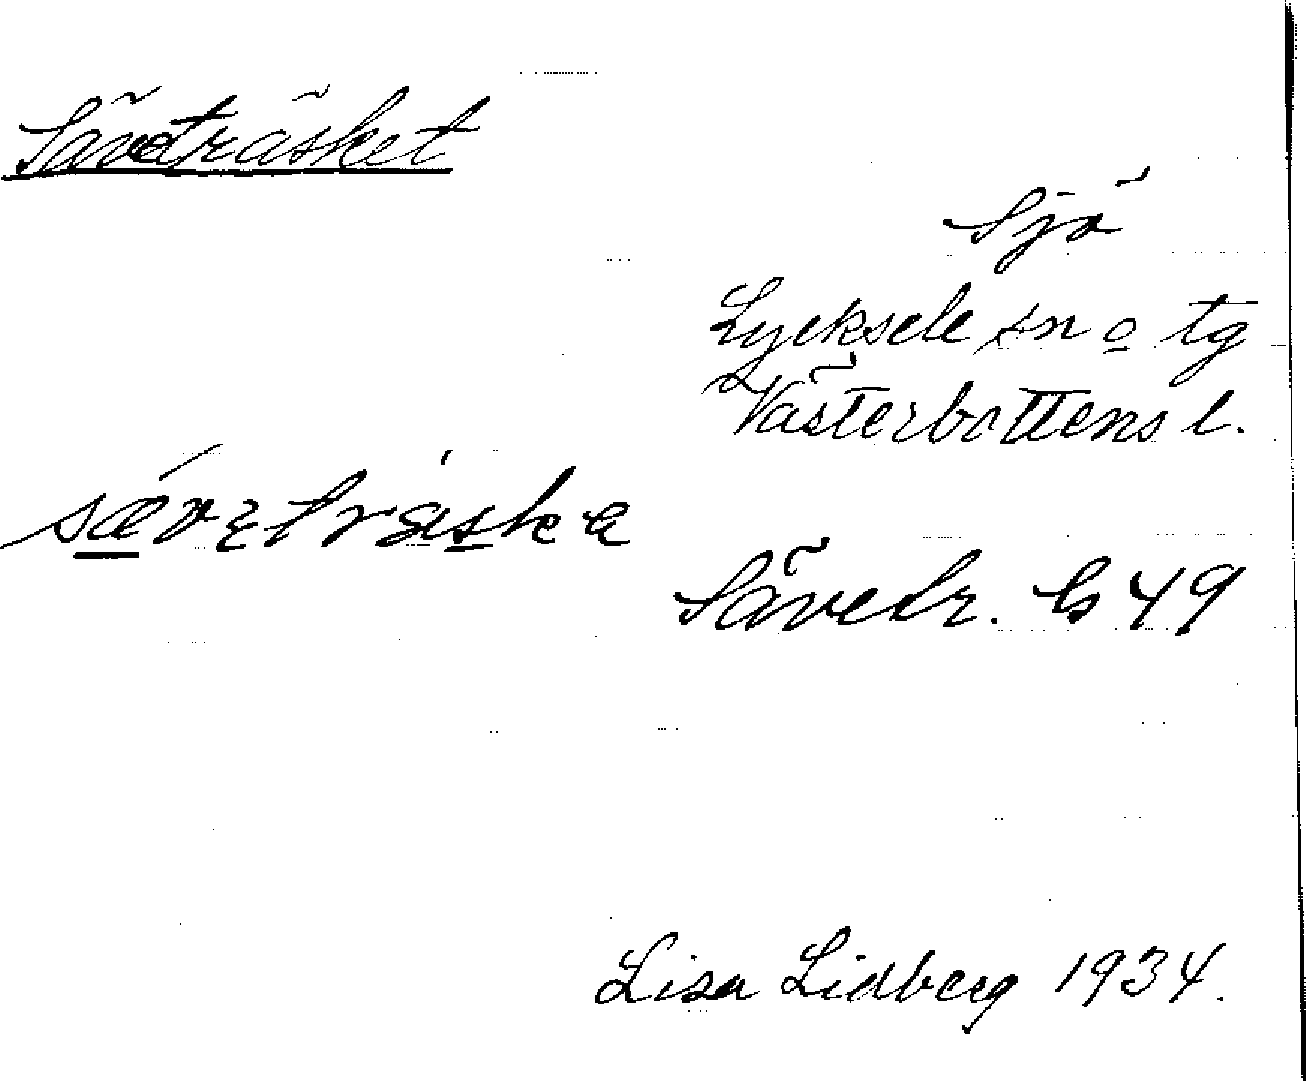 Sävträsket
Sjö
Lycksele sn o tg
Västerbottens l.
Sävetr. b 49
Lisa Lidberg 1934.